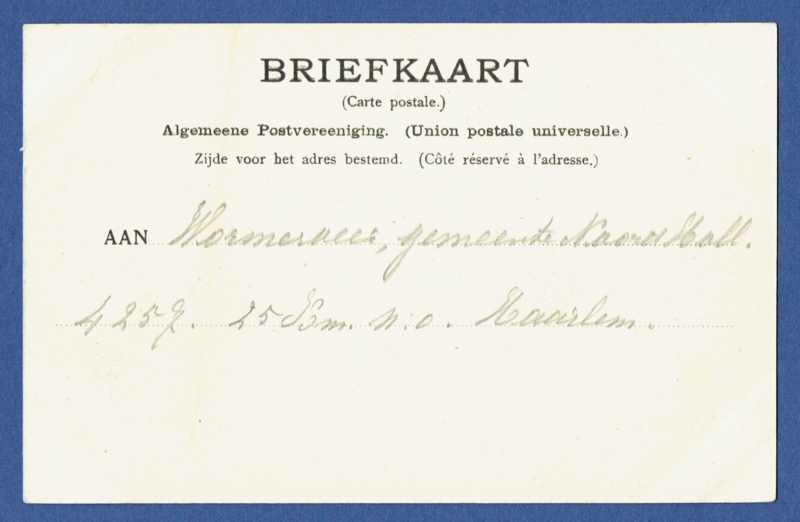 BRIEFKAART
(Carte postale.)
Algemeene Postvereeniging. (Union postale universelle.)
Zijde voor het adres bestemd. (Côté réservé à l'adresse.)
AAN Wormerveer, gemeente Noord Holl.
4257. 25 Km. n.o. Haarlem.